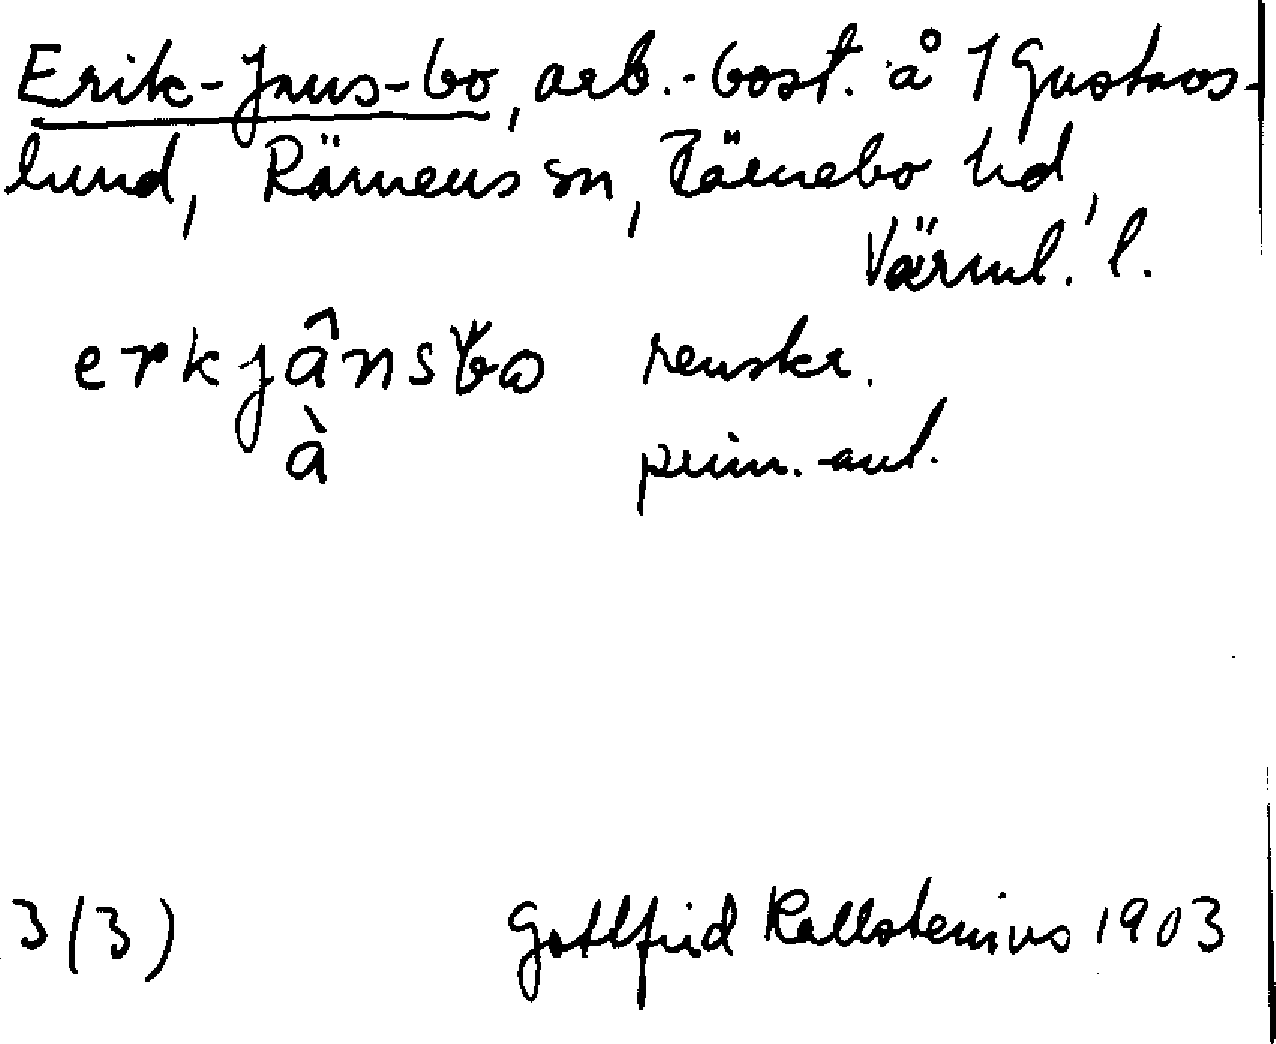 Erik-Jans-bo, arb.-bost. å 1 Gustavs-
lund, Rämens sn, Färnebo hd,
Värml. l.
erkjânsbo renskr.
à prim.-ant.
3(3) Gottfrid Kallstenius 1903